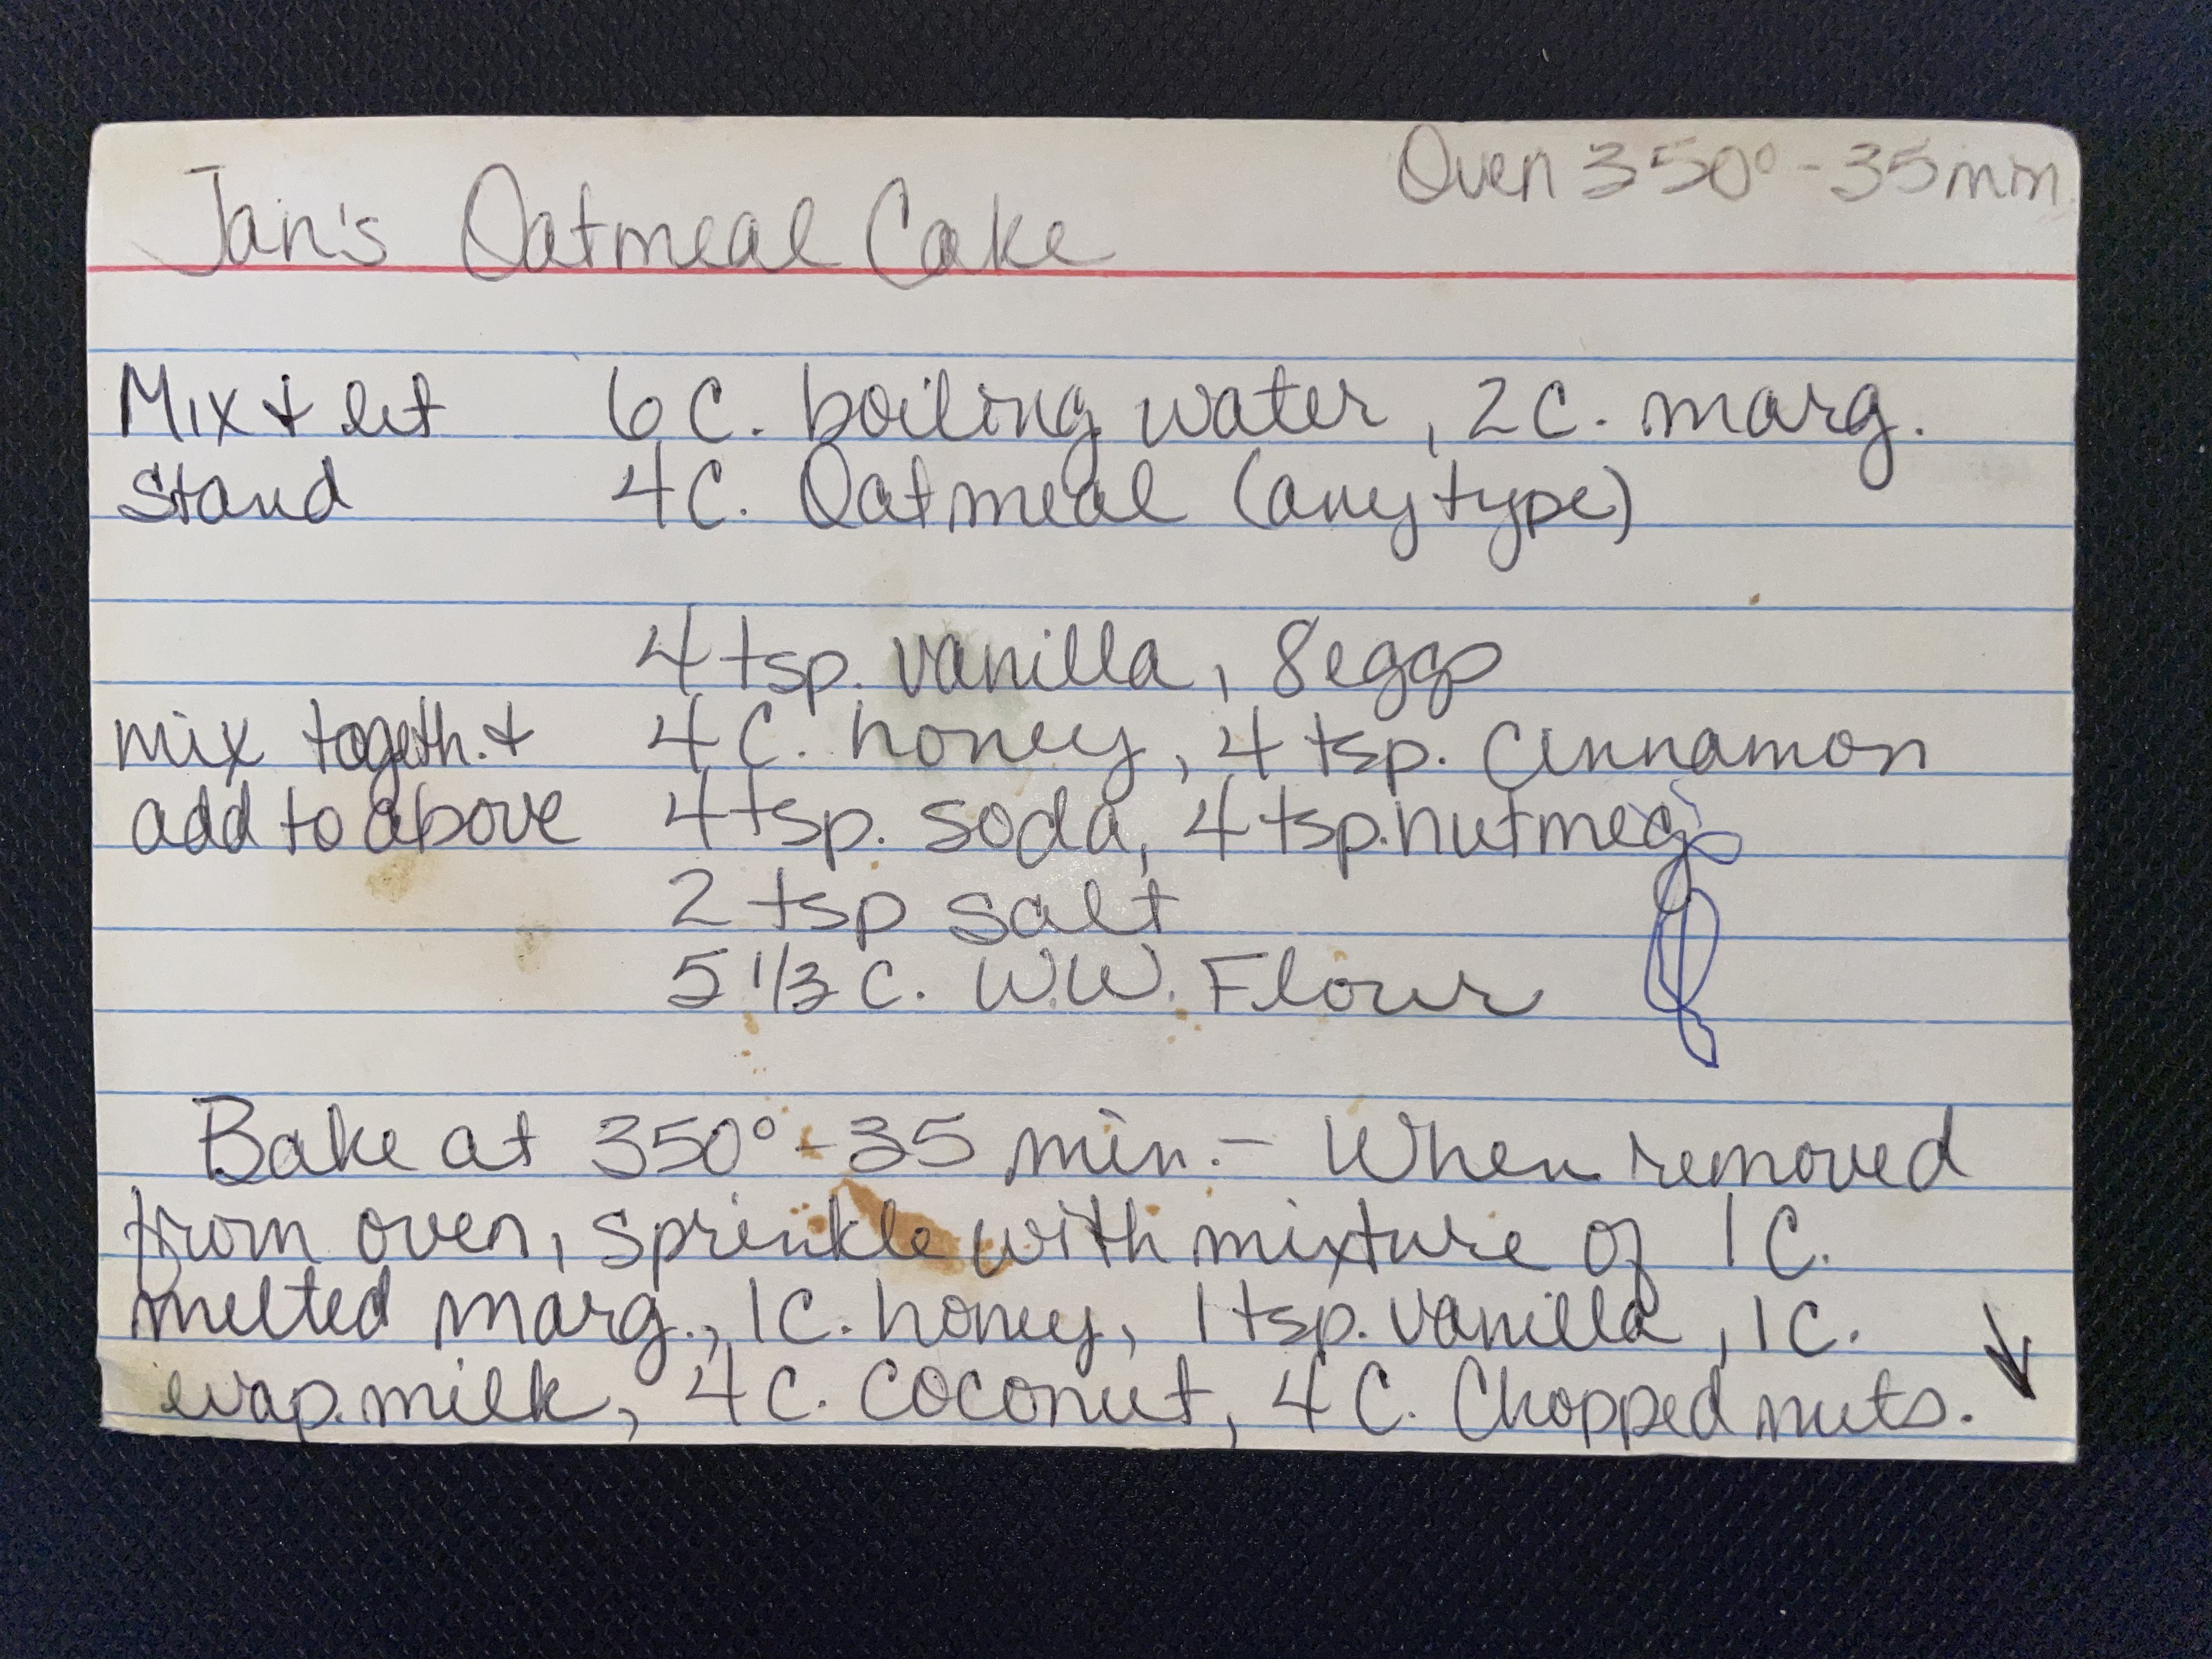 Oven 350° - 35 min
Jan's Oatmeal Cake
Mix & let 6 C. boiling water, 2 C. marg.
Stand 4 C. Oatmeal (any type)
4 tsp. vanilla, 8 eggs
mix togeth. & 4 C. honey, 4 tsp. Cinnamon
add to above 4 tsp. soda, 4 tsp. nutmeg
2 tsp salt
5 1/3 C. W.W. Flour
Bake at 350° - 35 min. - When removed
from oven, sprinkle with mixture of 1 C.
melted marg., 1 C. honey, 1 tsp. vanilla, 1 C.
evap. milk, 4 C. Coconut, 4 C. Chopped nuts.